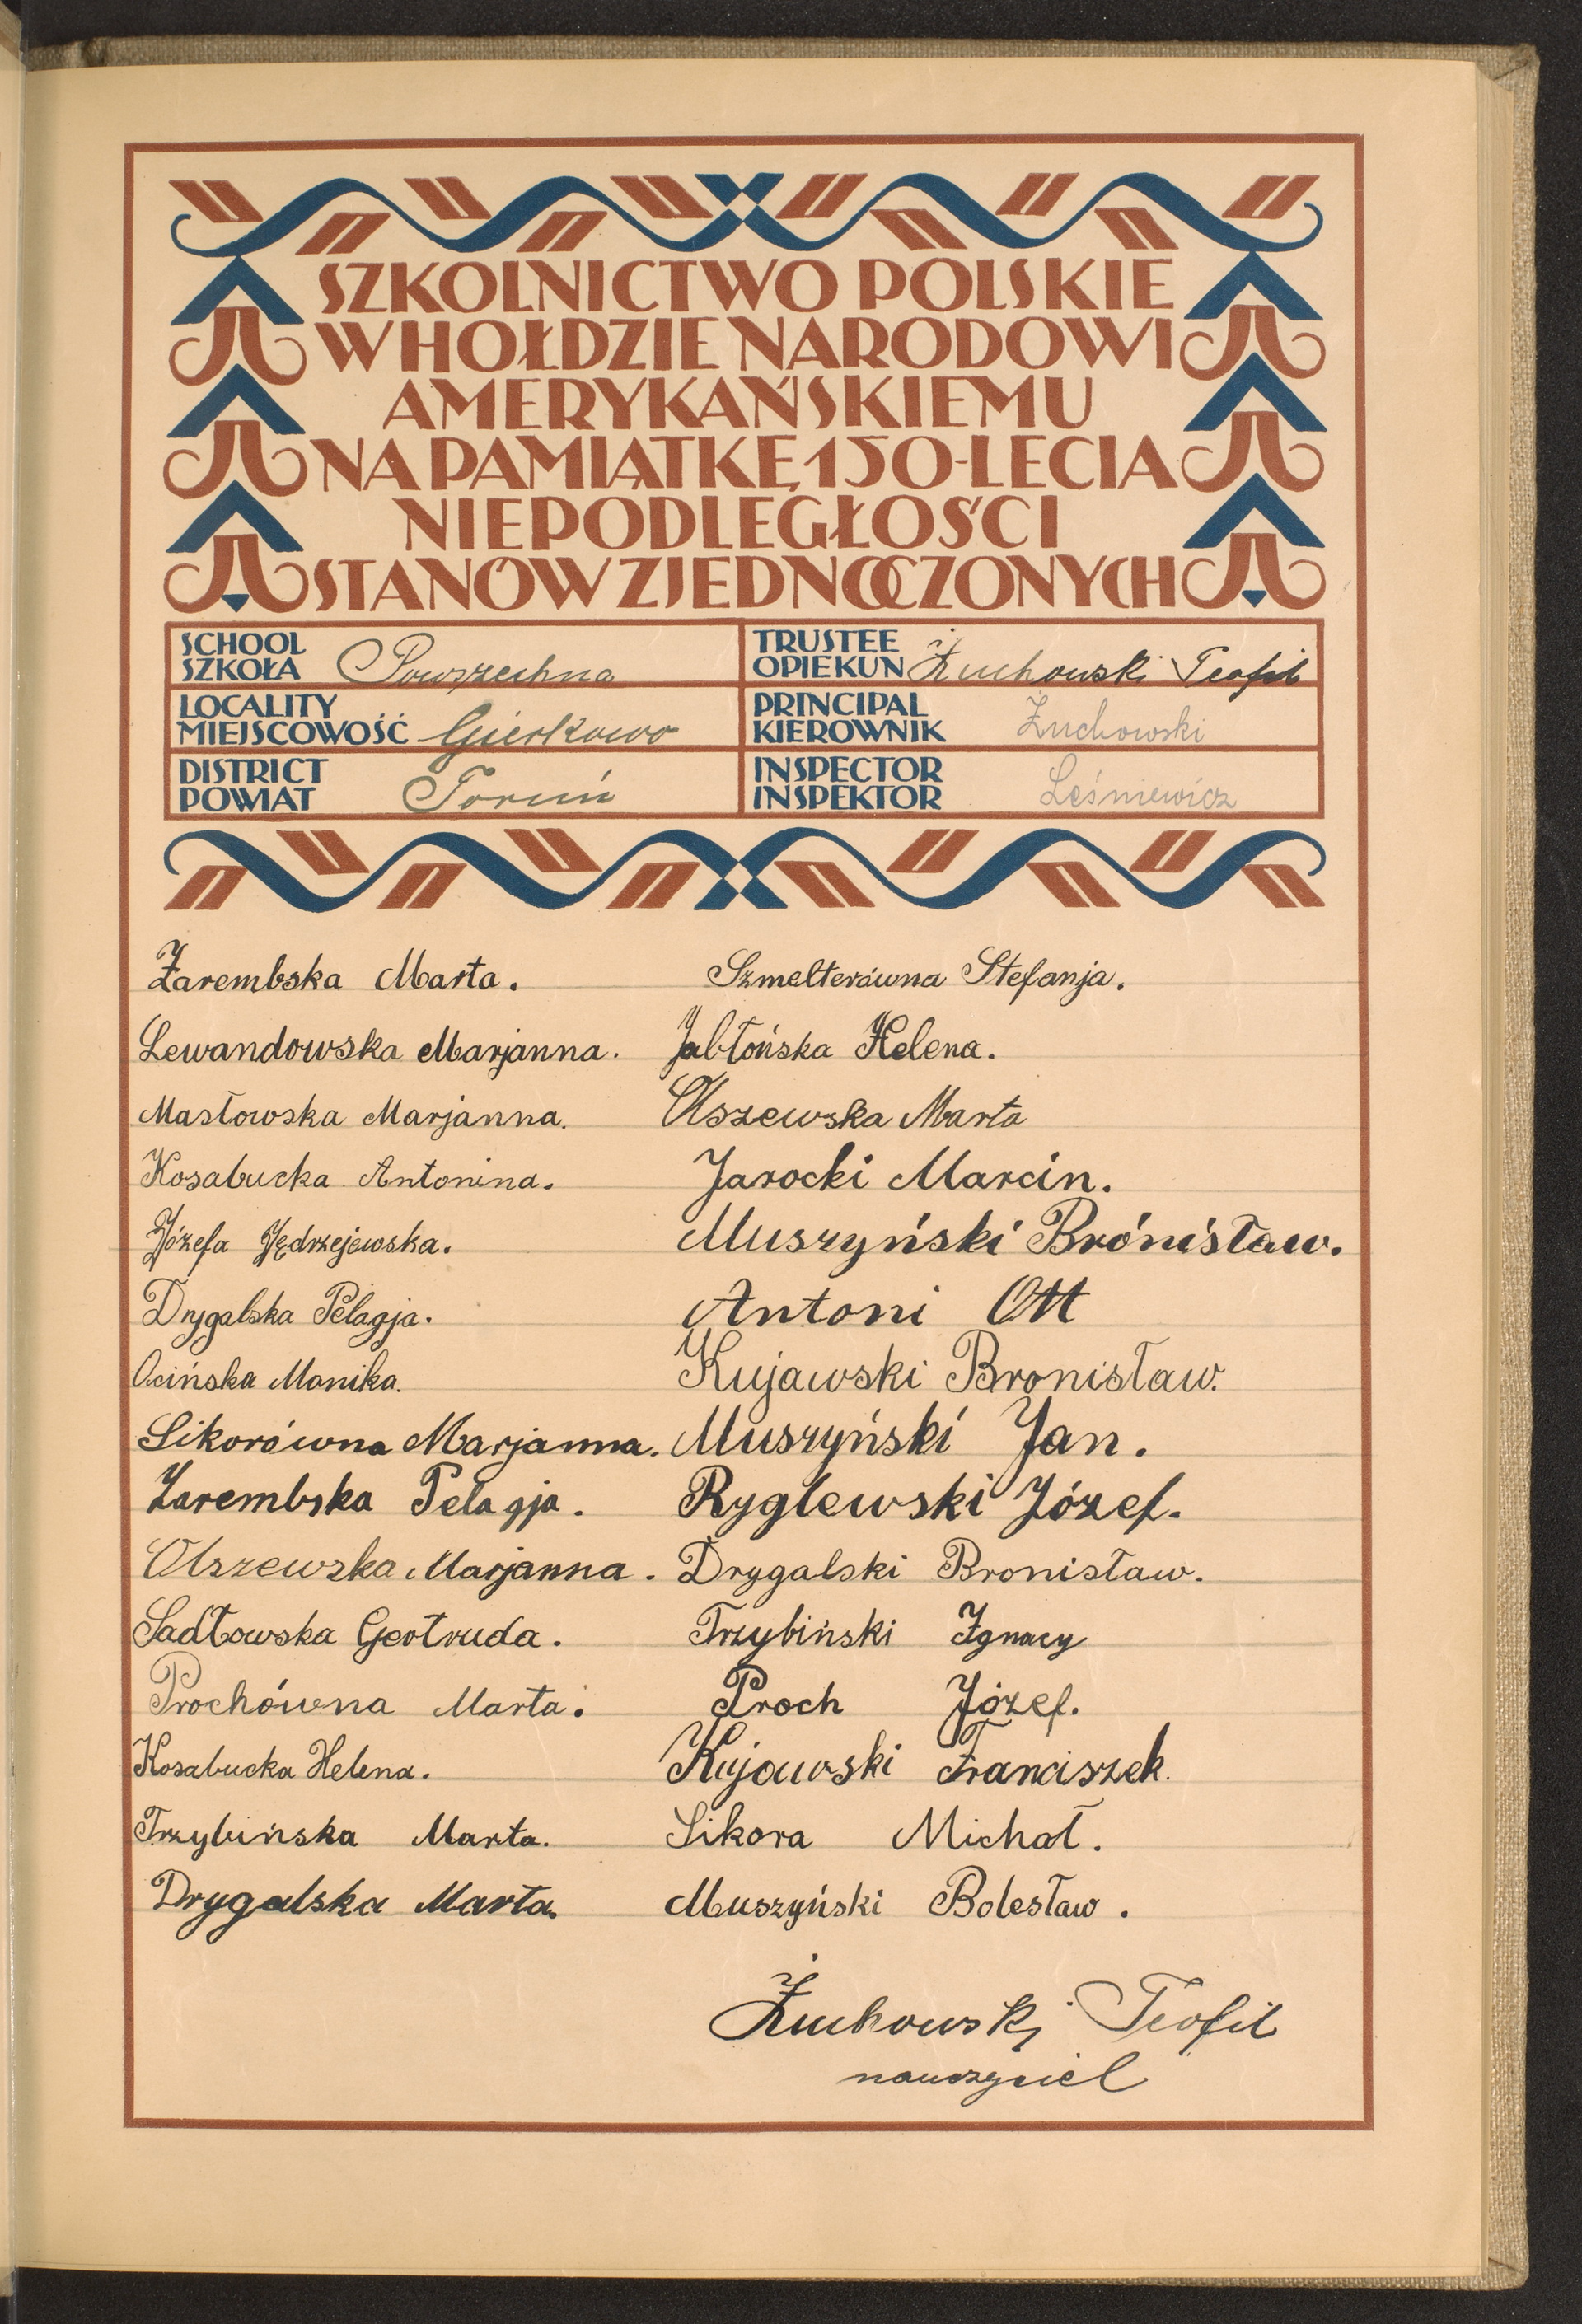 SZKOLNICTWO POLSKIE
W HOŁDZIE NARODOWI
AMERYKAŃSKIEMU
NA PAMIĄTKĘ 150-LECIA
NIEPODLEGŁOŚCI
STANÓW ZJEDNOCZONYCH
SCHOOL
SZKOŁA Powszechna
TRUSTEE
OPIEKUN Żuchowski Teofil
LOCALITY
MIEJSCOWOŚĆ Gierkowo
PRINCIPAL
KIEROWNIK Żuchowski
DISTRICT
POWIAT Toruń
INSPECTOR
INSPEKTOR Leśniewicz
Zarembska Marta.
Lewandowska Marjanna.
Masłowska Marjanna.
Kosabucka Antonina.
Józefa Jędrzejewska.
Drygalska Pelagja.
Ocińska Monika.
Sikorówna Marjanna.
Zarembska Pelagja.
Olszewska Marjanna.
Sadłowska Gertruda.
Prochówna Marta.
Kosabucka Helena.
Trzybińska Marta.
Drygalska Marta.
Szmelterówna Stefanja.
Jabłońska Helena.
Olszewska Marta
Jarocki Marcin.
Muszyński Brónisław.
Antoni Ott
Kujawski Bronisław.
Muszyński Jan.
Ryglewski Józef.
Drygalski Bronisław.
Trzybiński Ignacy
Proch Józef.
Kujawski Franciszek.
Sikora Michał.
Muszyński Bolesław.
Żuchowski Teofil
nauczyciel